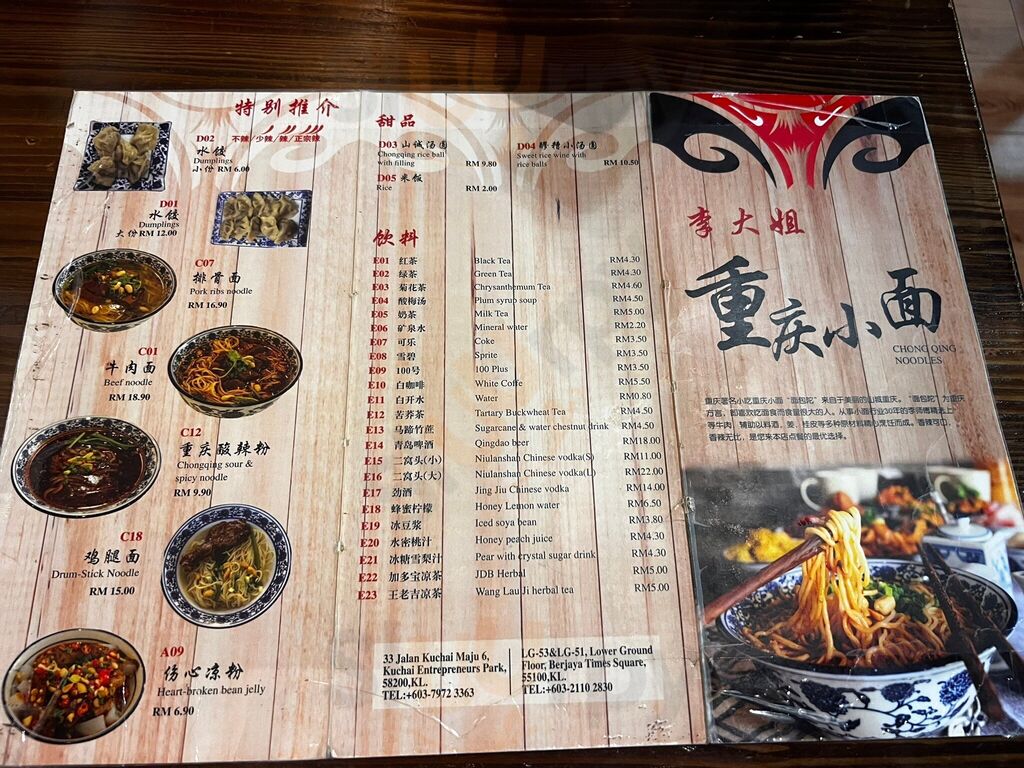 特别推介
不辣/少辣/辣/正宗辣
D02
水饺
Dumplings
小份 RM 6.00
D01
水饺
Dumplings
大份 RM 12.00
C07
排骨面
Pork ribs noodle
RM 16.90
C01
牛肉面
Beef noodle
RM 18.90
C12
重庆酸辣粉
Chongqing sour &
spicy noodle
RM 9.90
C18
鸡腿面
Drum-Stick Noodle
RM 15.00
A09
伤心凉粉
Heart-broken bean jelly
RM 6.90
甜品
D03 山诚汤圆
Chongqing rice ball
with filling RM 9.80
D04 醪糟小汤圆
Sweet rice wine with
rice balls RM 10.50
D05 米饭
Rice RM 2.00
饮料
E01 红茶 Black Tea RM4.30
E02 绿茶 Green Tea RM4.30
E03 菊花茶 Chrysanthemum Tea RM4.60
E04 酸梅汤 Plum syrup soup RM4.50
E05 奶茶 Milk Tea RM5.00
E06 矿泉水 Mineral water RM2.20
E07 可乐 Coke RM3.50
E08 雪碧 Sprite RM3.50
E09 100号 100 Plus RM3.50
E10 白咖啡 White Coffe RM5.50
E11 白开水 Water RM0.80
E12 苦荞茶 Tartary Buckwheat Tea RM4.50
E13 马蹄竹蔗 Sugarcane & water chestnut drink RM4.50
E14 青岛啤酒 Qingdao beer RM18.00
E15 二窝头(小) Niulanshan Chinese vodka(S) RM11.00
E16 二窝头(大) Niulanshan Chinese vodka(L) RM22.00
E17 劲酒 Jing Jiu Chinese vodka RM14.00
E18 蜂蜜柠檬 Honey Lemon water RM6.50
E19 冰豆浆 Iced soya bean RM3.80
E20 水密桃汁 Honey peach juice RM4.30
E21 冰糖雪梨汁 Pear with crystal sugar drink RM4.30
E22 加多宝凉茶 JDB Herbal RM5.00
E23 王老吉凉茶 Wang Lau Ji herbal tea RM5.00
33 Jalan Kuchai Maju 6,
Kuchai Entrepreneurs Park,
58200,KL.
TEL:+603-7972 3363
LG-53&LG-51, Lower Ground
Floor, Berjaya Times Square,
55100,KL.
TEL:+603-2110 2830
李大姐
重庆小面
CHONG QING
NOODLES
重庆著名小吃重庆小面“面包砣”来自于美丽的山城重庆。“面包砣”为重庆
方言，即喜欢吃面食而食量很大的人。从事小面行业30年的李师傅精选上
等牛肉，辅助以料酒，姜，桂皮等多种原材料精心烹饪而成。香辣可口，
香辣无比，是您来本店点餐的最优选择。